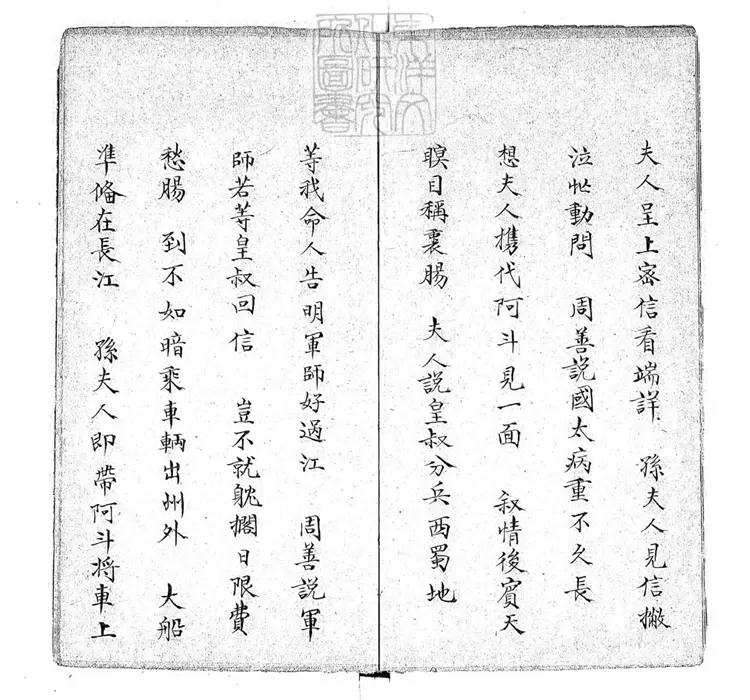 夫人呈上密信看端詳 孫夫人見信撇
泣忙動問 周善說國太病重不久長
想夫人携代阿斗見一面 叙情後賓天
瞑目稱裏腸 夫人說皇叔分兵西蜀地
等我命人告明軍師好過江 周善說軍
師若等皇叔回信 豈不就躭擱日限費
愁腸 到不如暗乘車輛出州外 大船
準俻在長江 孫夫人即帶阿斗將車上